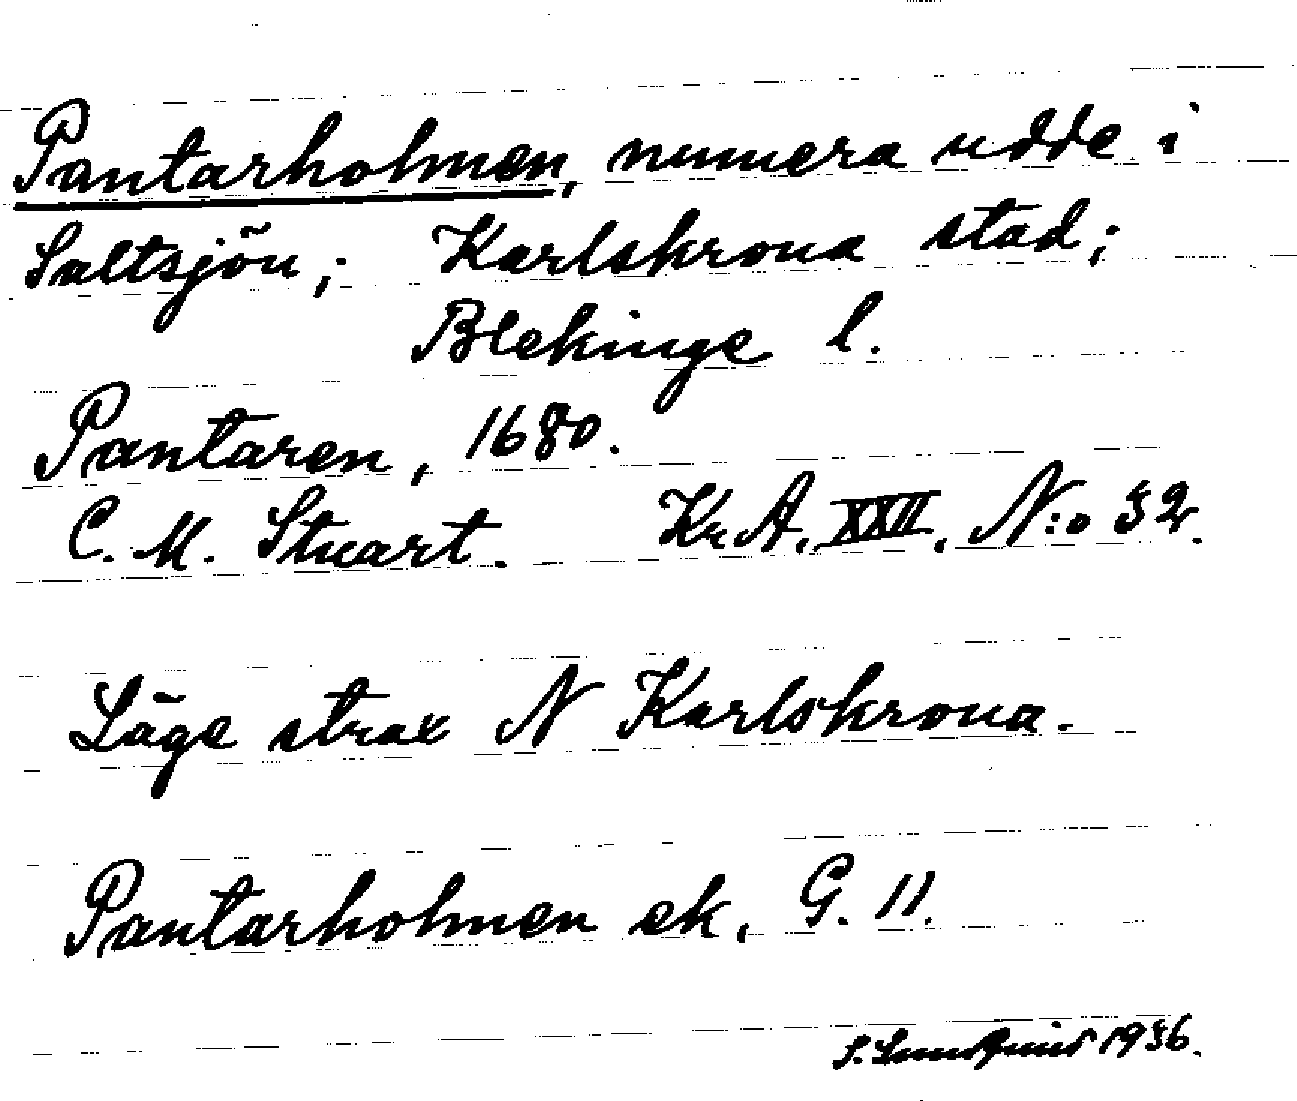 Pantarholmen, numera udde i
Saltsjön; Karlskrona stad;
Blekinge l.
Pantaren, 1680.
C. M. Stuart. Kr. A. XXII. N:o 32.
Läge strax N Karlskrona.
Pantarholmen ek. G. 11.
S. Lundquist 1936.